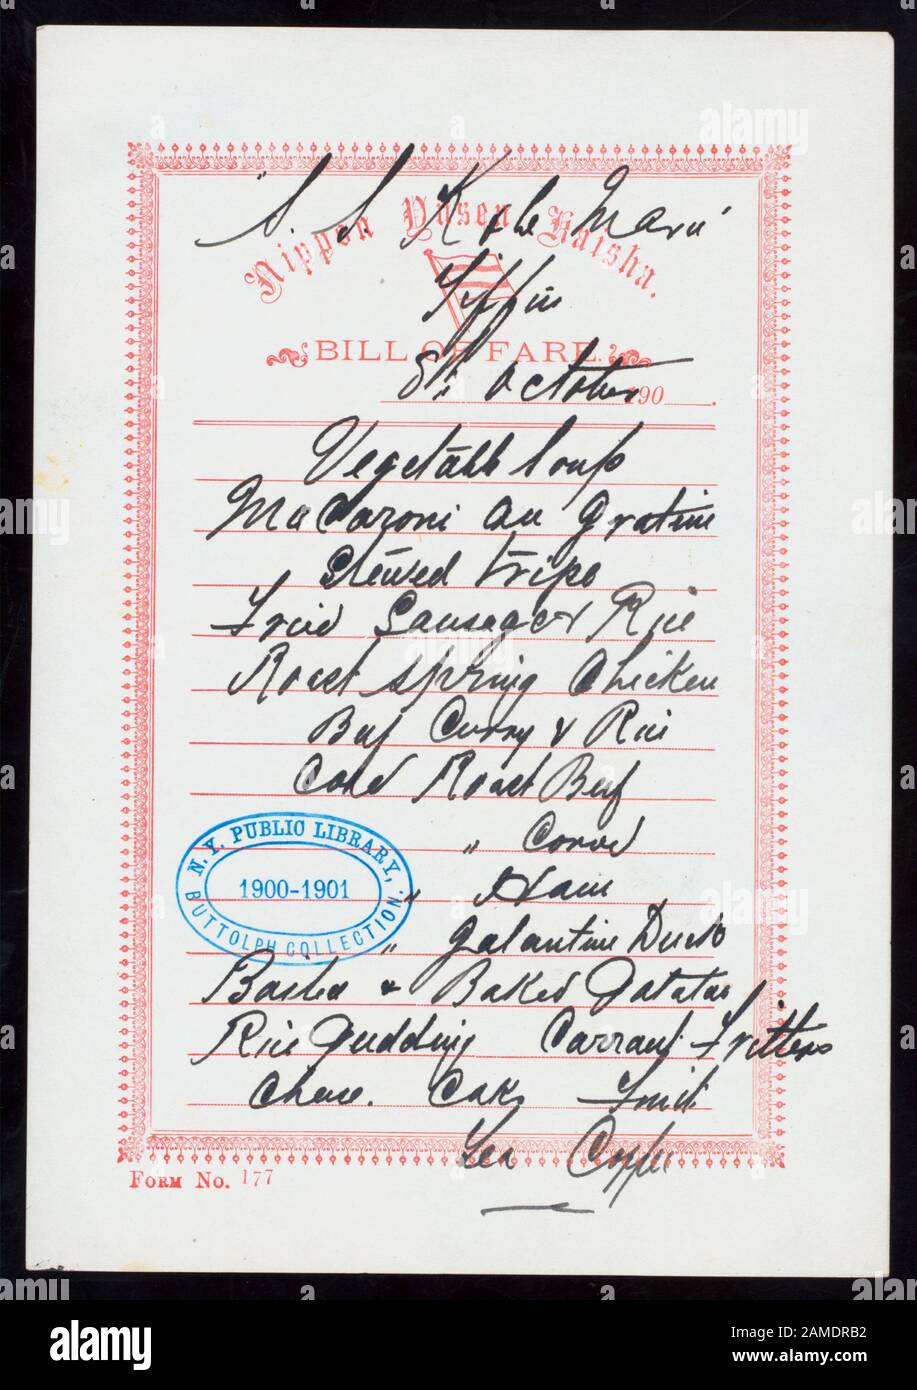 "S. S. Kobe Maru"
Nippon Yusen Kaisha.
Tiffin
BILL OF FARE.
8th October 190
Vegetable Soup
Macaroni au Gratine
Stewed Tripe
Fried Sausages & Rice
Roast Spring Chicken
Beef Curry & Rice
Cold Roast Beef
" Corned
" Ham
" Galantine Duck
& Baked Potatoes
Rice Pudding Currant Fritters
Cheese. Cake Fruit
Tea Coffee
N. Y. PUBLIC LIBRARY,
1900-1901
BUTTOLPH COLLECTION.
FORM No. 177
alamy
alamy
Image ID: 2AMDRB2
www.alamy.com